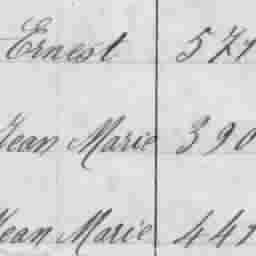 Ernest 571
Jean Marie 390
Jean Marie 441